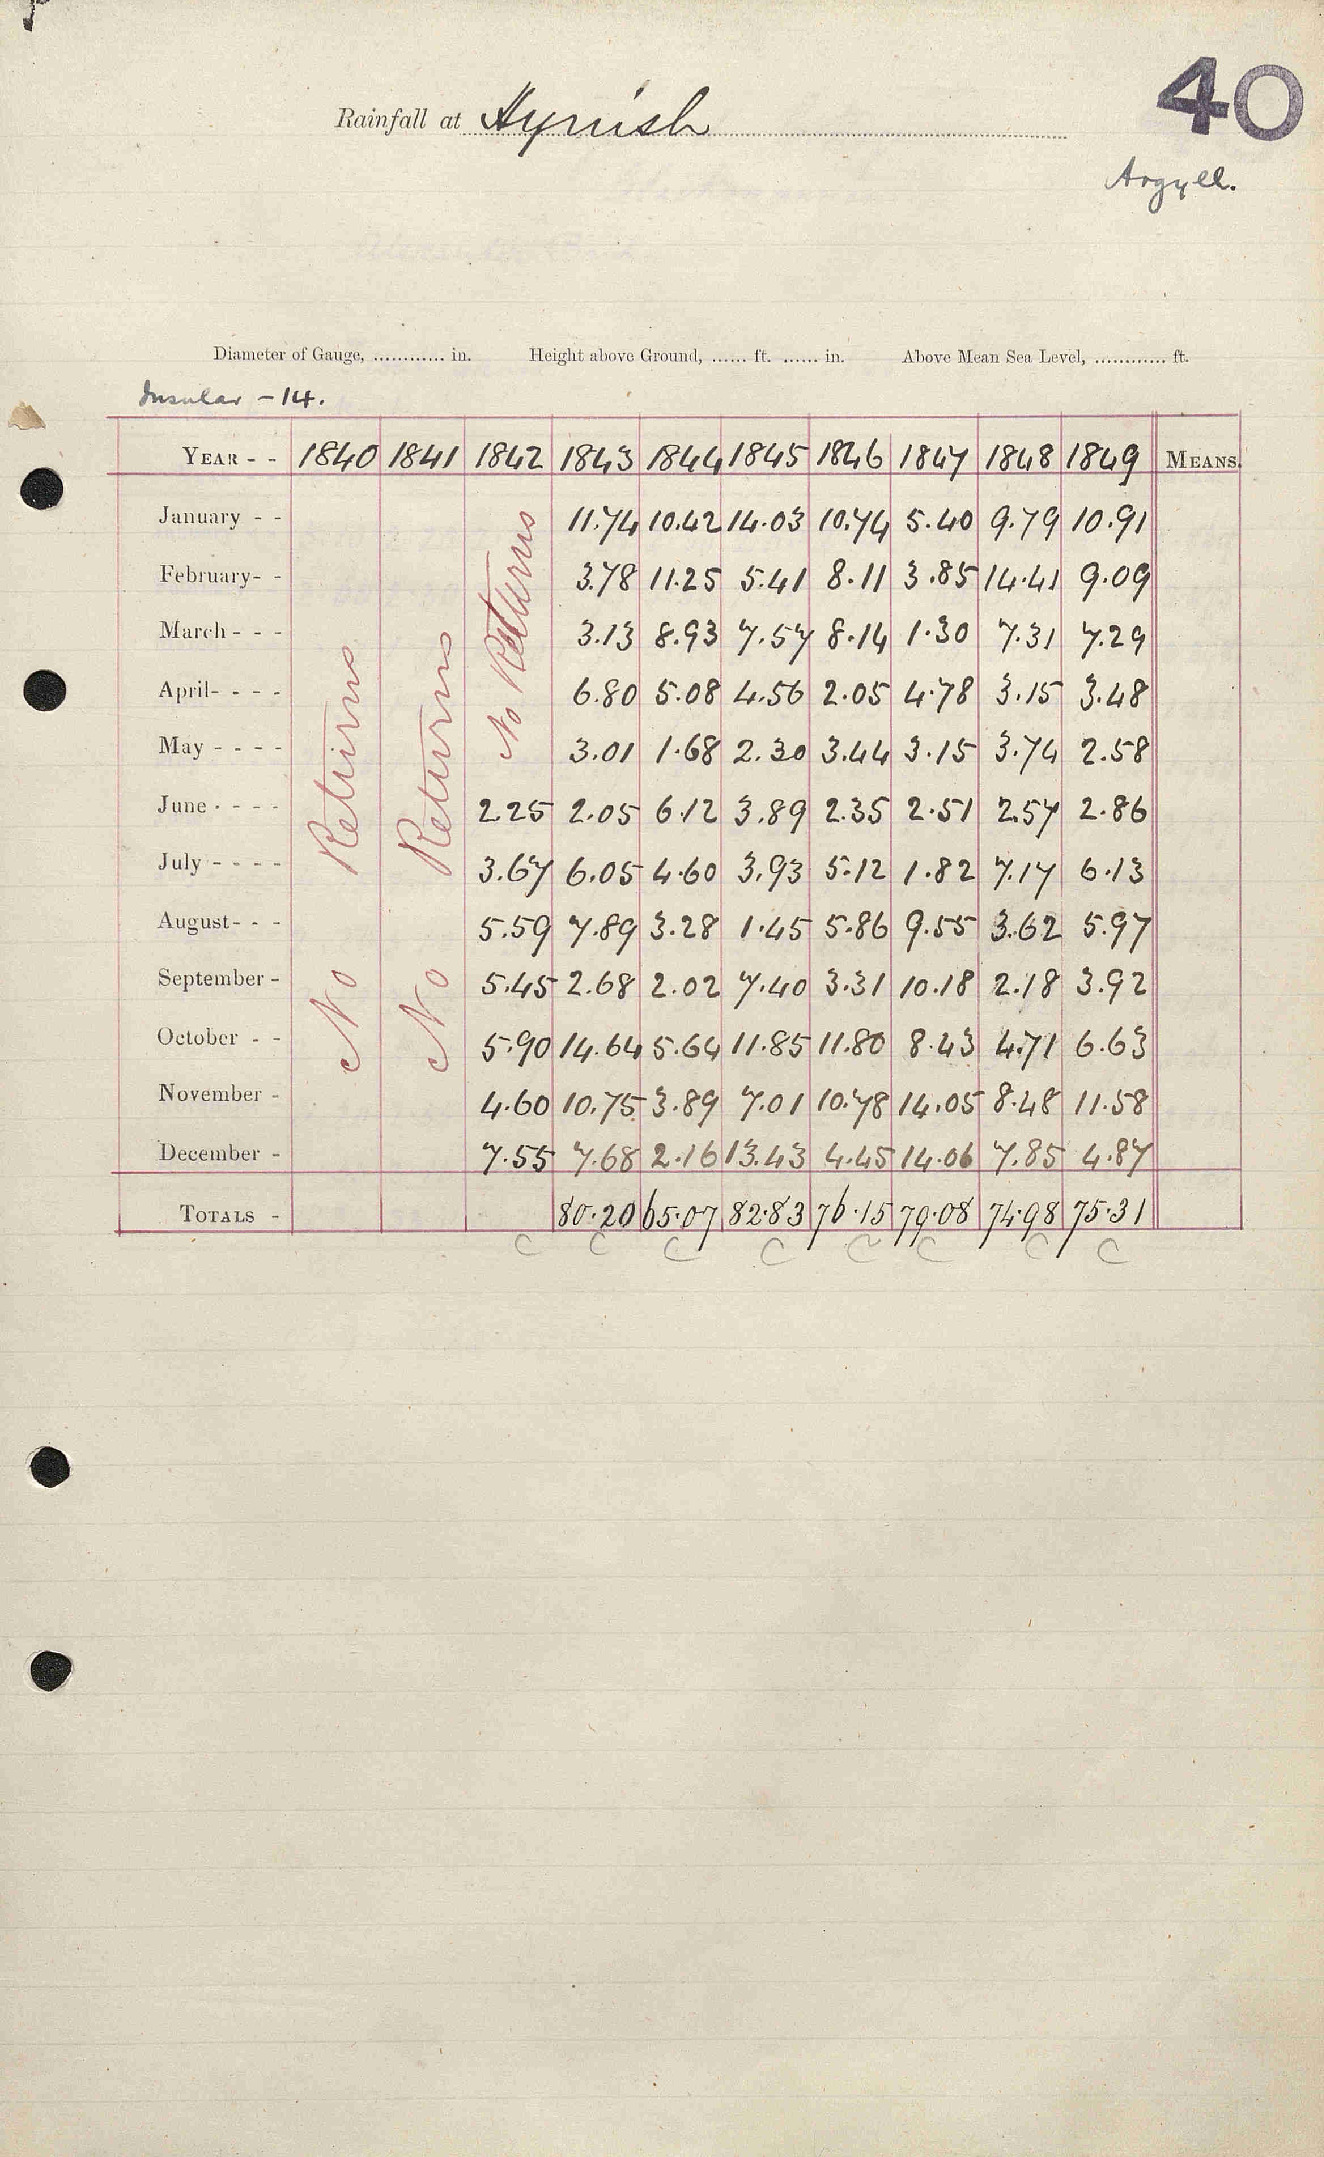 40
Rainfall at Hynish
Argyll.
Diameter of Gauge, ............ in. Height above Ground, ...... ft. ...... in. Above Mean Sea Level, ............ ft.
Insular - 14.
YEAR - - 1840 1841 1842 1843 1844 1845 1846 1847 1848 1849 MEANS.
No Returns
No Returns
No Returns
January - - 11.74 10.42 14.03 10.74 5.40 9.79 10.91
February- - 3.78 11.25 5.41 8.11 3.85 14.41 9.09
March - - - 3.13 8.93 7.57 8.14 1.30 7.31 7.29
April- - - - 6.80 5.08 4.56 2.05 4.78 3.15 3.48
May - - - - 3.01 1.68 2.30 3.44 3.15 3.74 2.58
June - - - - 2.25 2.05 6.12 3.89 2.35 2.51 2.57 2.86
July - - - - 3.67 6.05 4.60 3.93 5.12 1.82 7.17 6.13
August- - - 5.59 7.89 3.28 1.45 5.86 9.55 3.62 5.97
September - 5.45 2.68 2.02 7.40 3.31 10.18 2.18 3.92
October - - 5.90 14.64 5.64 11.85 11.80 8.43 4.71 6.63
November - 4.60 10.75 3.89 7.01 10.78 14.05 8.48 11.58
December - 7.55 7.68 2.16 13.43 4.45 14.06 7.85 4.87
TOTALS - 80.20 65.07 82.83 76.15 79.08 74.98 75.31
C C C C C C C C